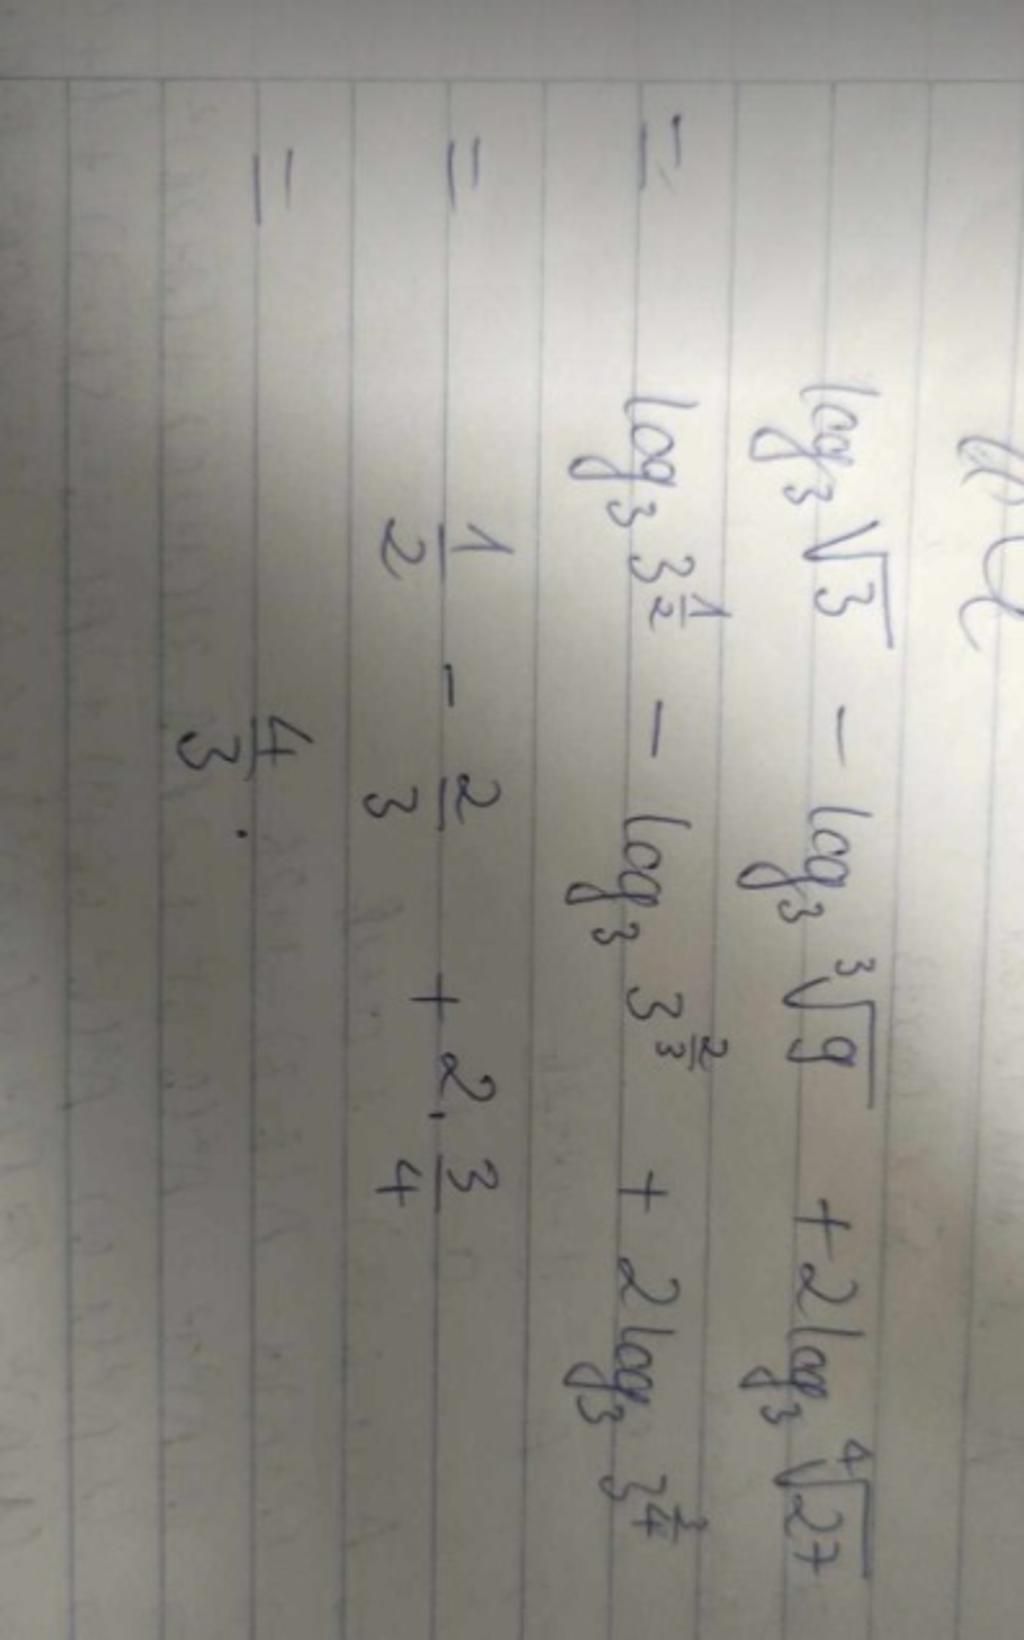 log₃√3 - log₃∛9 + 2log₃∜27
= log₃ 3^(1/2) - log₃ 3^(2/3) + 2log₃ 3^(3/4)
= 1/2 - 2/3 + 2.3/4
= 4/3.